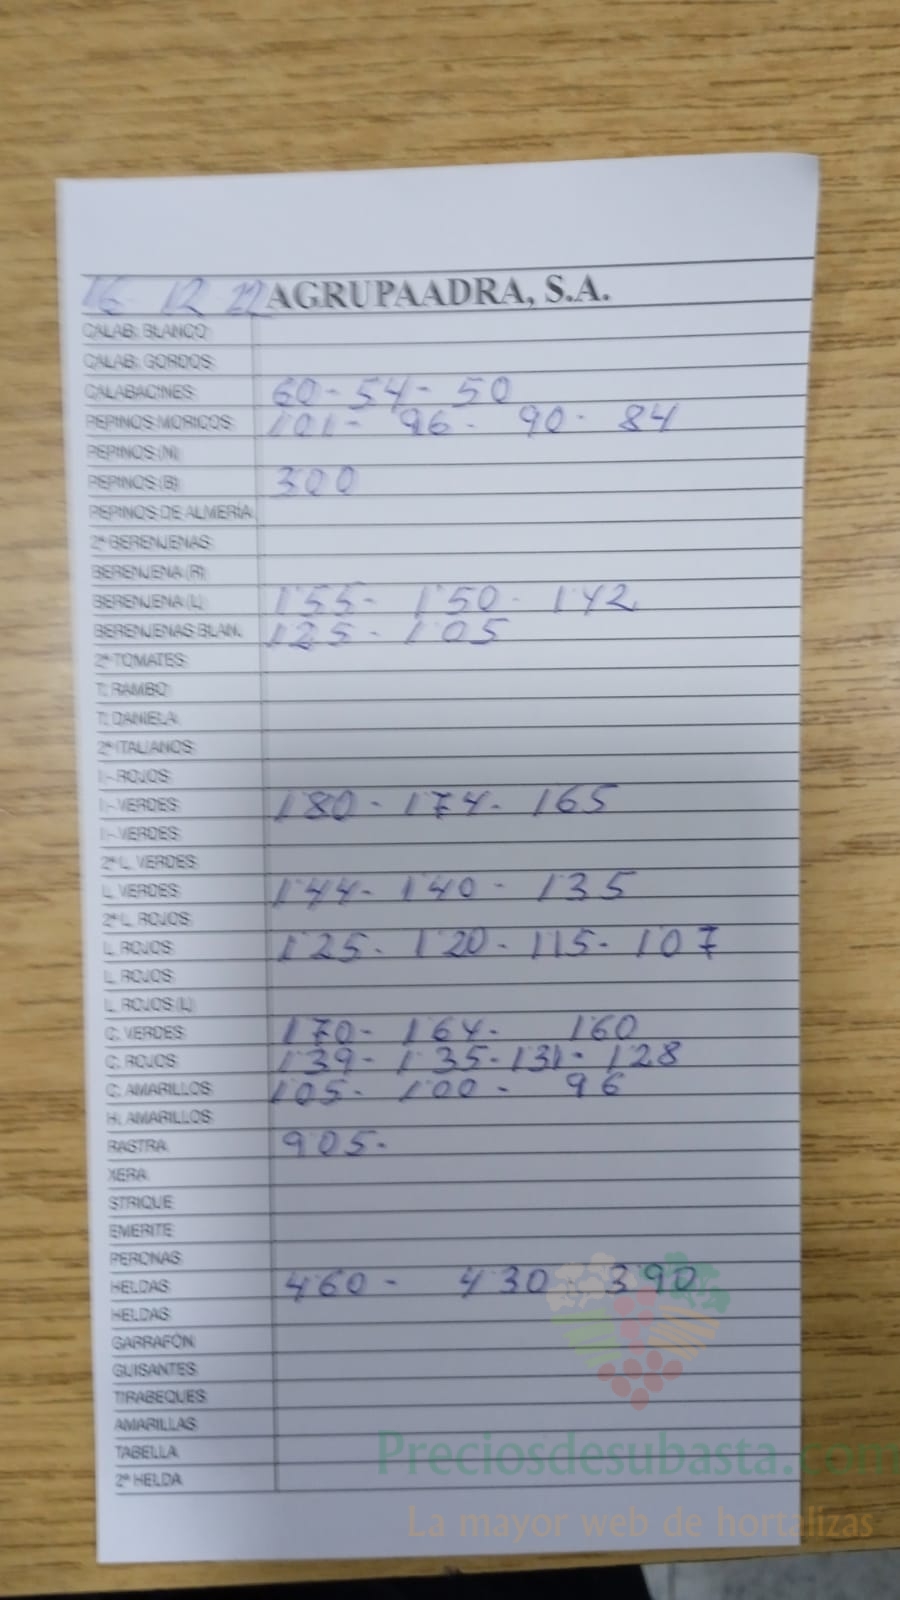 16 12 22 AGRUPAADRA, S.A.
CALAB. BLANCO
CALAB. GORDOS
CALABACINES 60 - 54 - 50
PEPINOS MORICOS 101 - 96 - 90 - 84
PEPINOS (N)
PEPINOS (B) 300
PEPINOS DE ALMERÍA
2ª BERENJENAS
BERENJENA (R)
BERENJENA (L) 1'55 - 1'50 - 142
BERENJENAS BLAN. 125 - 105
2ª TOMATES
T. RAMBO
T. DANIELA
2ª ITALIANOS
I - ROJOS
I - VERDES 180 - 174 - 165
I - VERDES
2ª L. VERDES
L. VERDES 144 - 140 - 135
2ª L. ROJOS
L. ROJOS 125 - 120 - 115 - 107
L. ROJOS
L. ROJOS (L)
C. VERDES 170 - 164 - 160
C. ROJOS 139 - 135 - 131 - 128
C. AMARILLOS 105 - 100 - 96
H. AMARILLOS
RASTRA 905 -
XERA
STRIQUE
EMERITE
PERONAS
HELDAS 460 - 430 - 390
HELDAS
GARRAFÓN
GUISANTES
TIRABEQUES
AMARILLAS
TABELLA
2ª HELDA
Preciosdesubasta.com
La mayor web de hortalizas